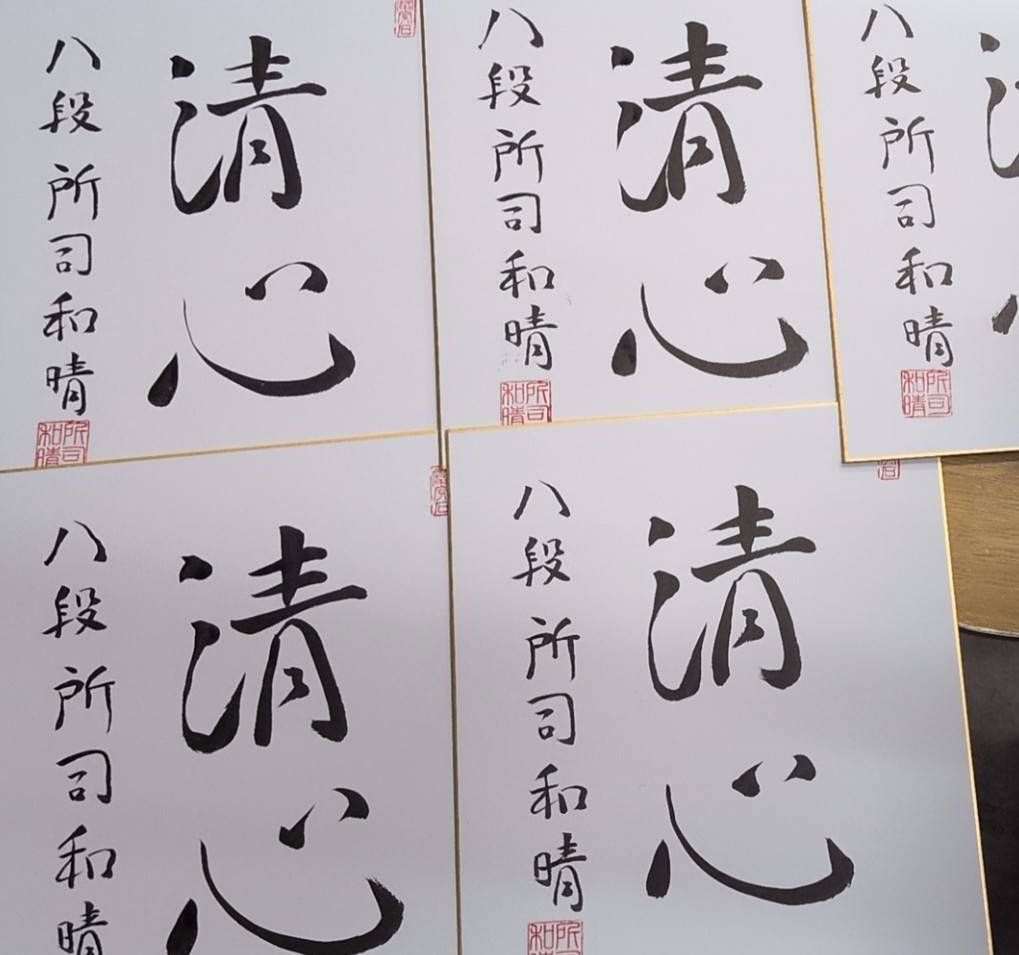 清心
八段 所司和晴
所司和晴
清心
八段 所司和晴
所司和晴
八段 所司和晴
所司和晴
清心
八段 所司和晴
清心
八段 所司和晴